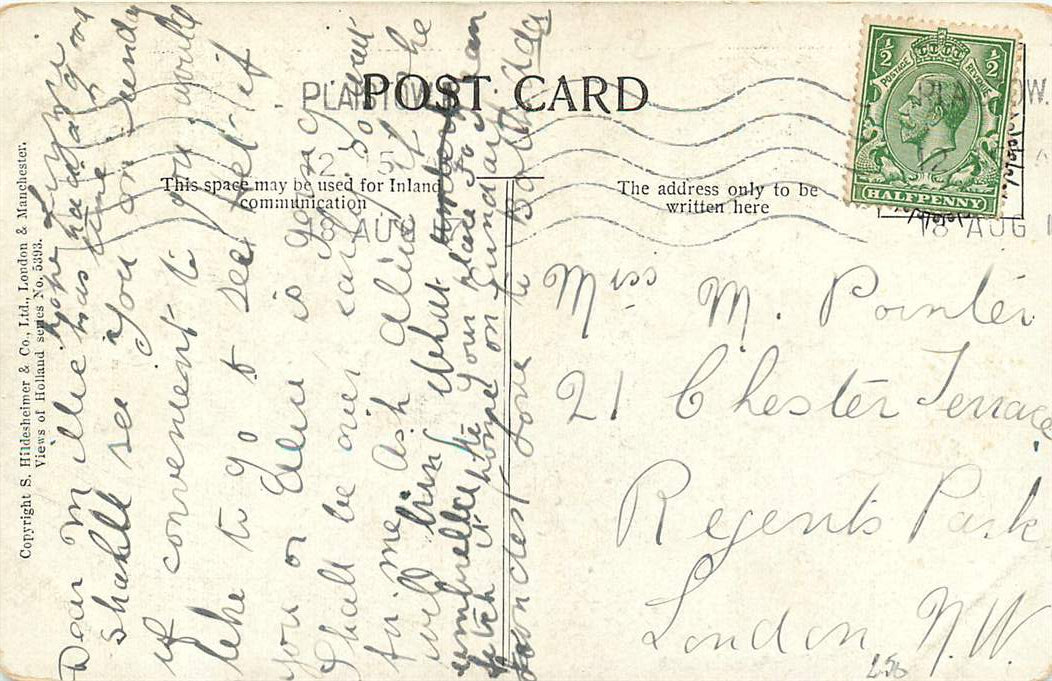 POST CARD
PLAISTOW
12 15
18 AUG
PLAISTOW.
18 AUG 1
This space may be used for Inland
communication.
The address only to be
written here
½ ½
POSTAGE REVENUE
HALFPENNY
Copyright S. Hildesheimer & Co., Ltd., London & Manchester.
Views of Holland series No. 5393.
Dear M
hope
time
shall see you on Sunday
if convenient to you would
like to go & see Pet if
you or Elsie is going
Shall be over early so wait
for me. Ask Alice if he
will bring What
umbrella to your place so I can
fetch it home on Sunday
fondest love to Both
Mrs M. Pointer
21 Chester Terrace
Regents Park
London N.W.